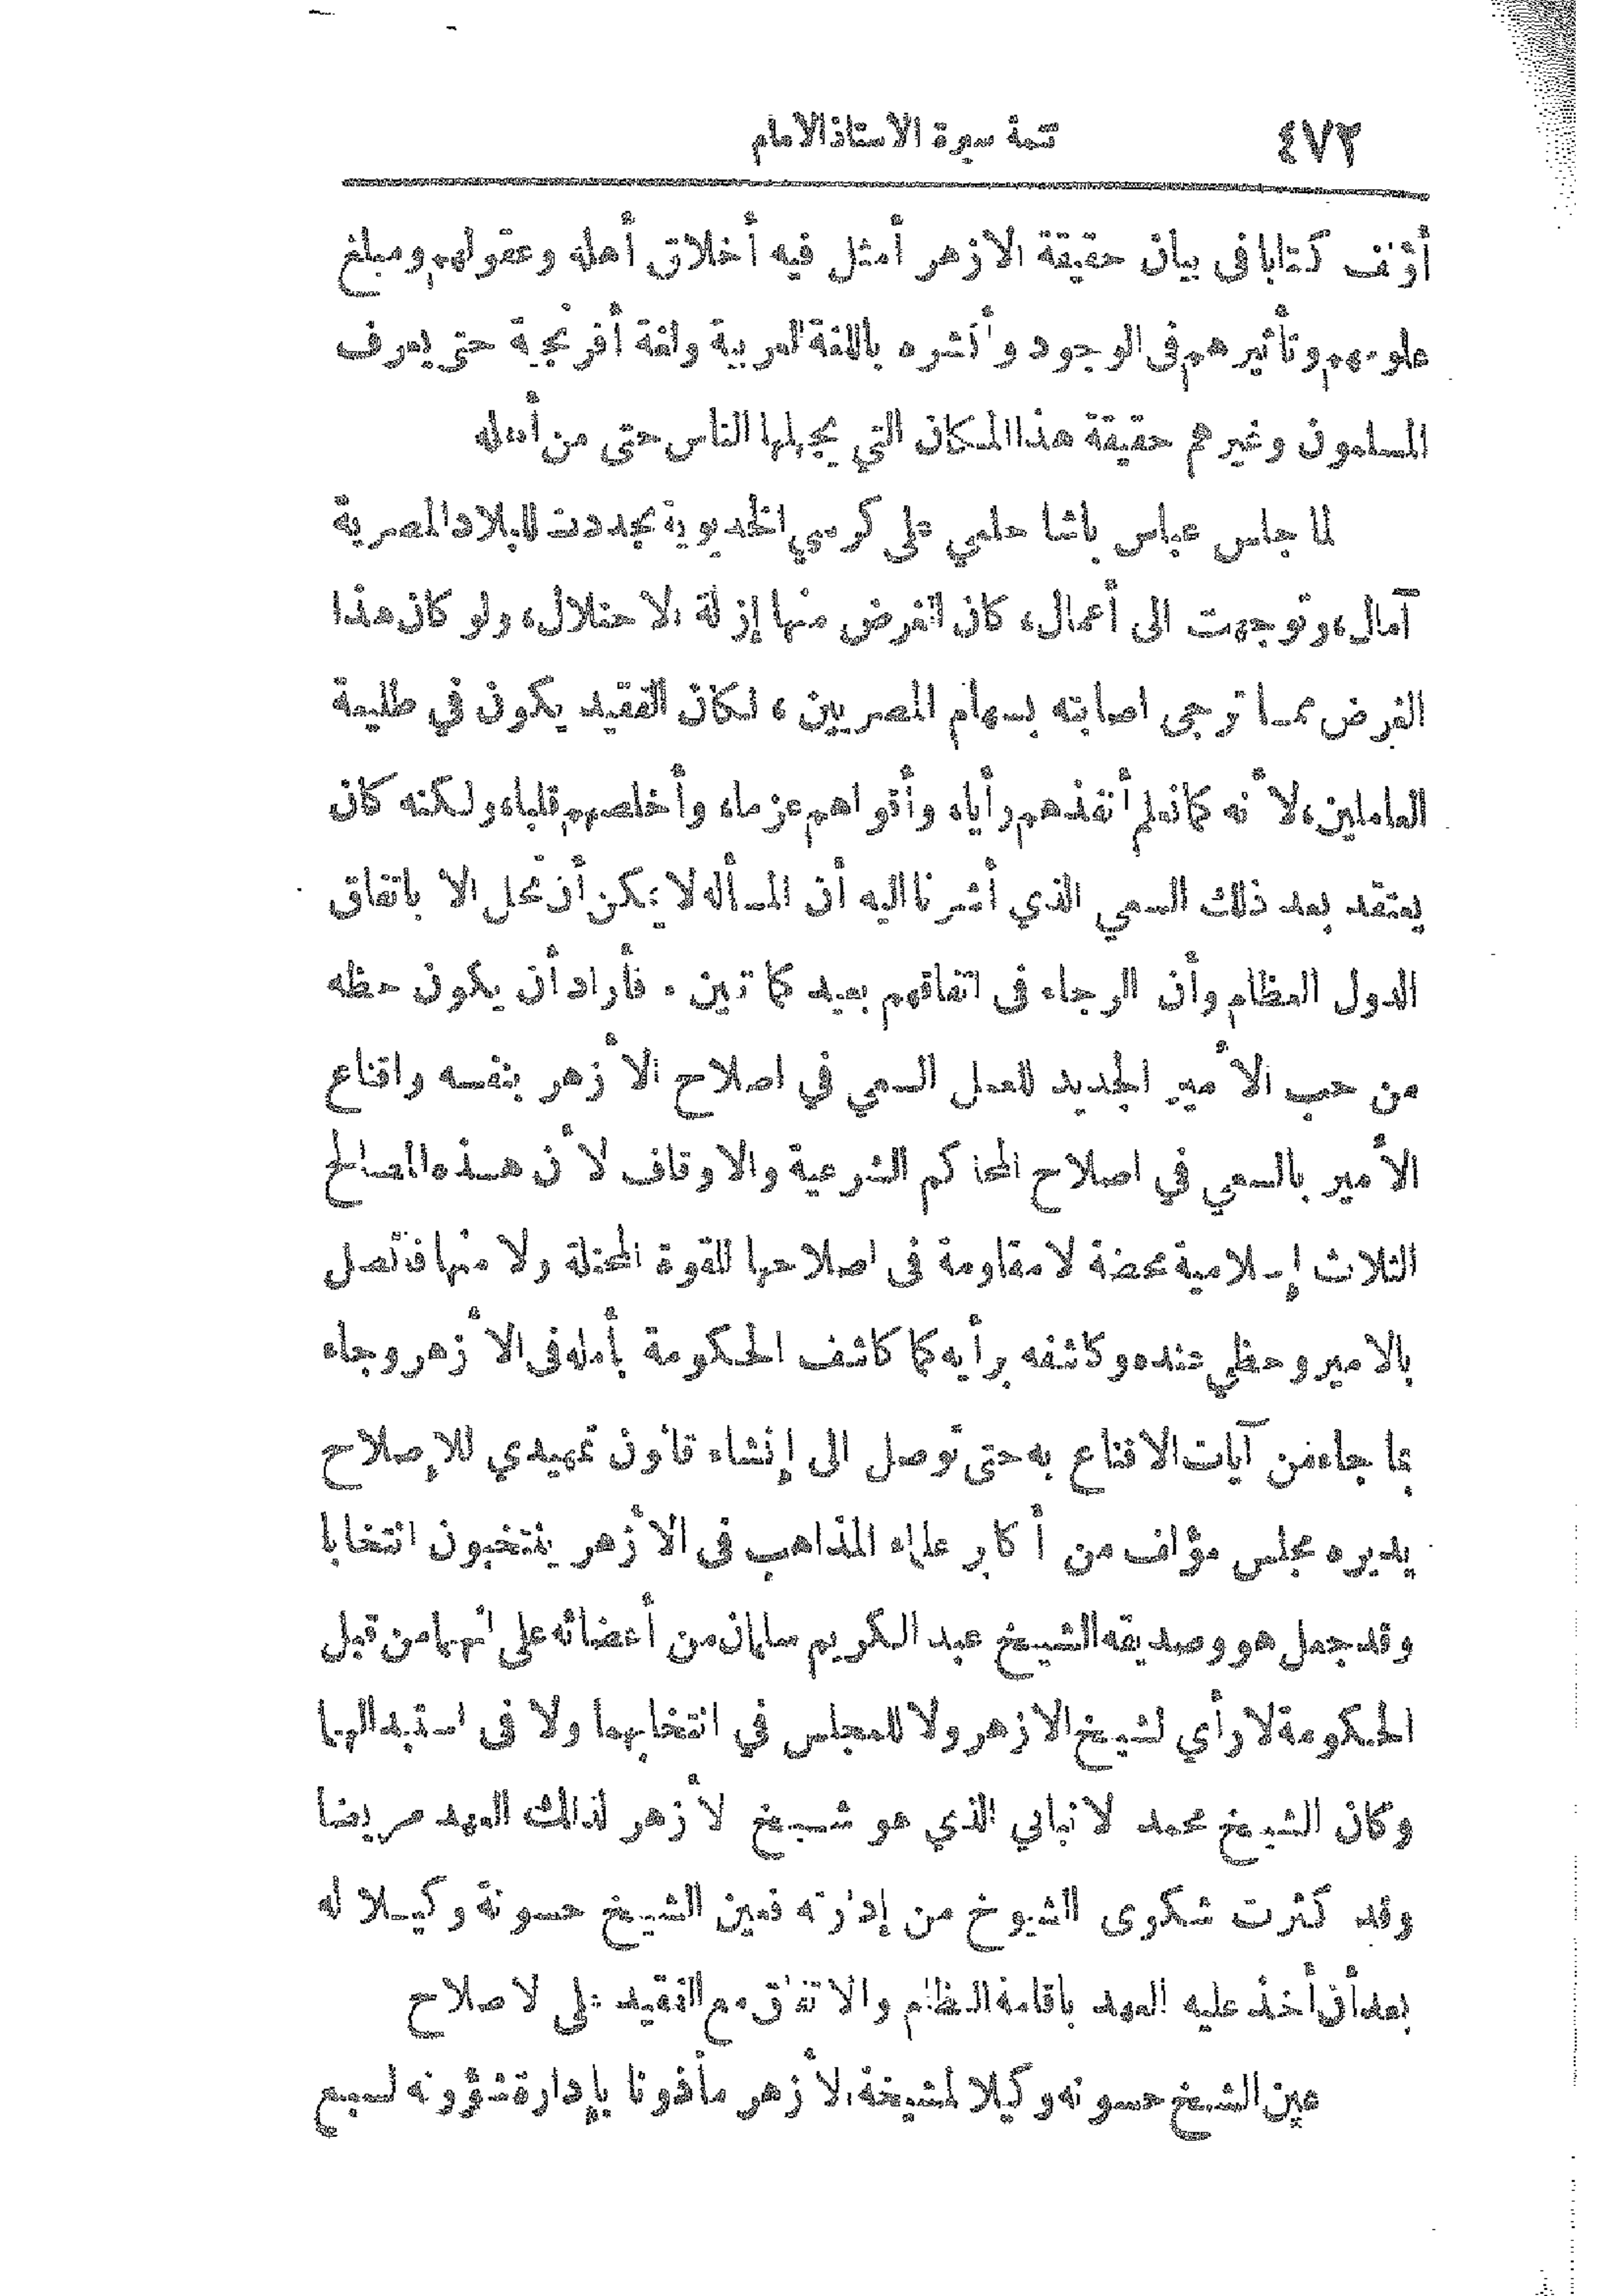 ٤٧٢ تتمة سيرة الاستاذ الامام
أؤلف كتابا في بيان حقيقة الازهر أمثل فيه أخلاق أهله وعقولهم ومبلغ
علومهم وتأثيرهم في الوجود وأنشره باللغة العربية ولغة أفرنجية حتى يعرف
المسلمون وغيرهم حقيقة هذا المكان التي يجهلها الناس حتى من أهله
لما جلس عباس باشا حلمي على كرسي الخديوية تجددت للبلاد المصرية
آمال، وتوجهت الى أعمال، كان الغرض منها إزالة الاحتلال، ولو كان هذا
الغرض مما ترجى اصابته بسهام المصريين، لكان الفقيد يكون في طليعة
العاملين، لأنه كما نعلم أنفذهم رأيا، وأقواهم عزما، وأخلصهم قلبا، ولكنه كان
يعتقد بعد ذلك السعي الذي أشرنا اليه أن المسألة لا يمكن أن تحل الا باتفاق
الدول العظام وأن الرجاء في اتفاقهم بعيد كما تبين. فأراد أن يكون حظه
من حب الأمير الجديد للعمل السعي في اصلاح الأزهر بنفسه واقناع
الأمير بالسعي في اصلاح المحاكم الشرعية والاوقاف لأن هذه المصالح
الثلاث إسلامية محضة لا مقاومة في اصلاحها للقوة المحتلة ولا منها فاتصل
بالامير وحظي عنده وكاشفه برأيه كما كاشف الحكومة بأمله في الأزهر وجاءه
بما جاءه من آيات الاقناع به حتى توصل الى إنشاء قانون تمهيدي للإصلاح
يديره مجلس مؤلف من أكابر علماء المذاهب في الأزهر ينتخبون انتخابا
وقد جعل هو وصديقه الشيخ عبد الكريم سلمان من أعضائه على انهما من قبل
الحكومة لا رأي لشيخ الازهر ولا للمجلس في انتخابهما ولا في استبدالهما
وكان الشيخ محمد الانبابي الذي هو شيخ الأزهر لذلك العهد مريضا
وقد كثرت شكوى الشيوخ من إدارته فعين الشيخ حسونة وكيلا له
بعد أن أخذ عليه العهد باقامة النظام والاتفاق مع الفقيد على الاصلاح
عين الشيخ حسونه وكيلا لمشيخة الأزهر مأذونا بإدارة شؤونه لسبع